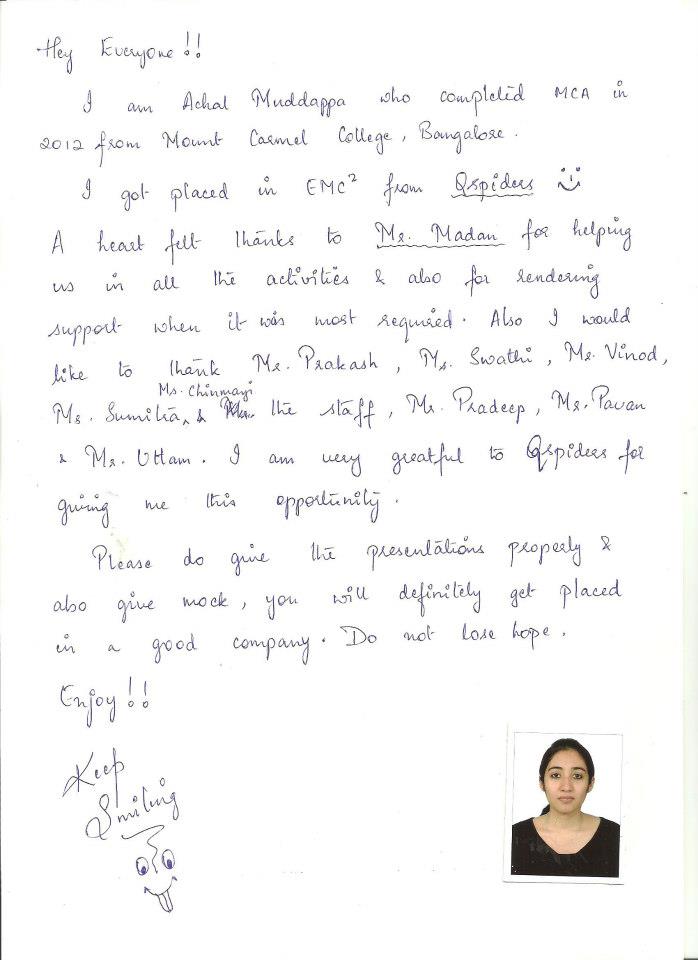 Hey Everyone!!
I am Achal Muddappa who completed MCA in
2012 from Mount Carmel College, Bangalore.
I got placed in EMC² from Qspiders
A heart felt thanks to Mr. Madan for helping
us in all the activities & also for rendering
support when it was most required. Also I would
like to thank Mr. Prakash, Ms. Swathi, Mr. Vinod,
Ms. Chinmayi
Ms. Sumitra, & the staff, Mr. Pradeep, Mr. Pavan
& Mr. Uttam. I am very greatful to Qspiders for
giving me this opportunity.
Please do give the presentations properly &
also give mock, you will definitely get placed
in a good company. Do not lose hope.
Enjoy!!
Keep
Smiling